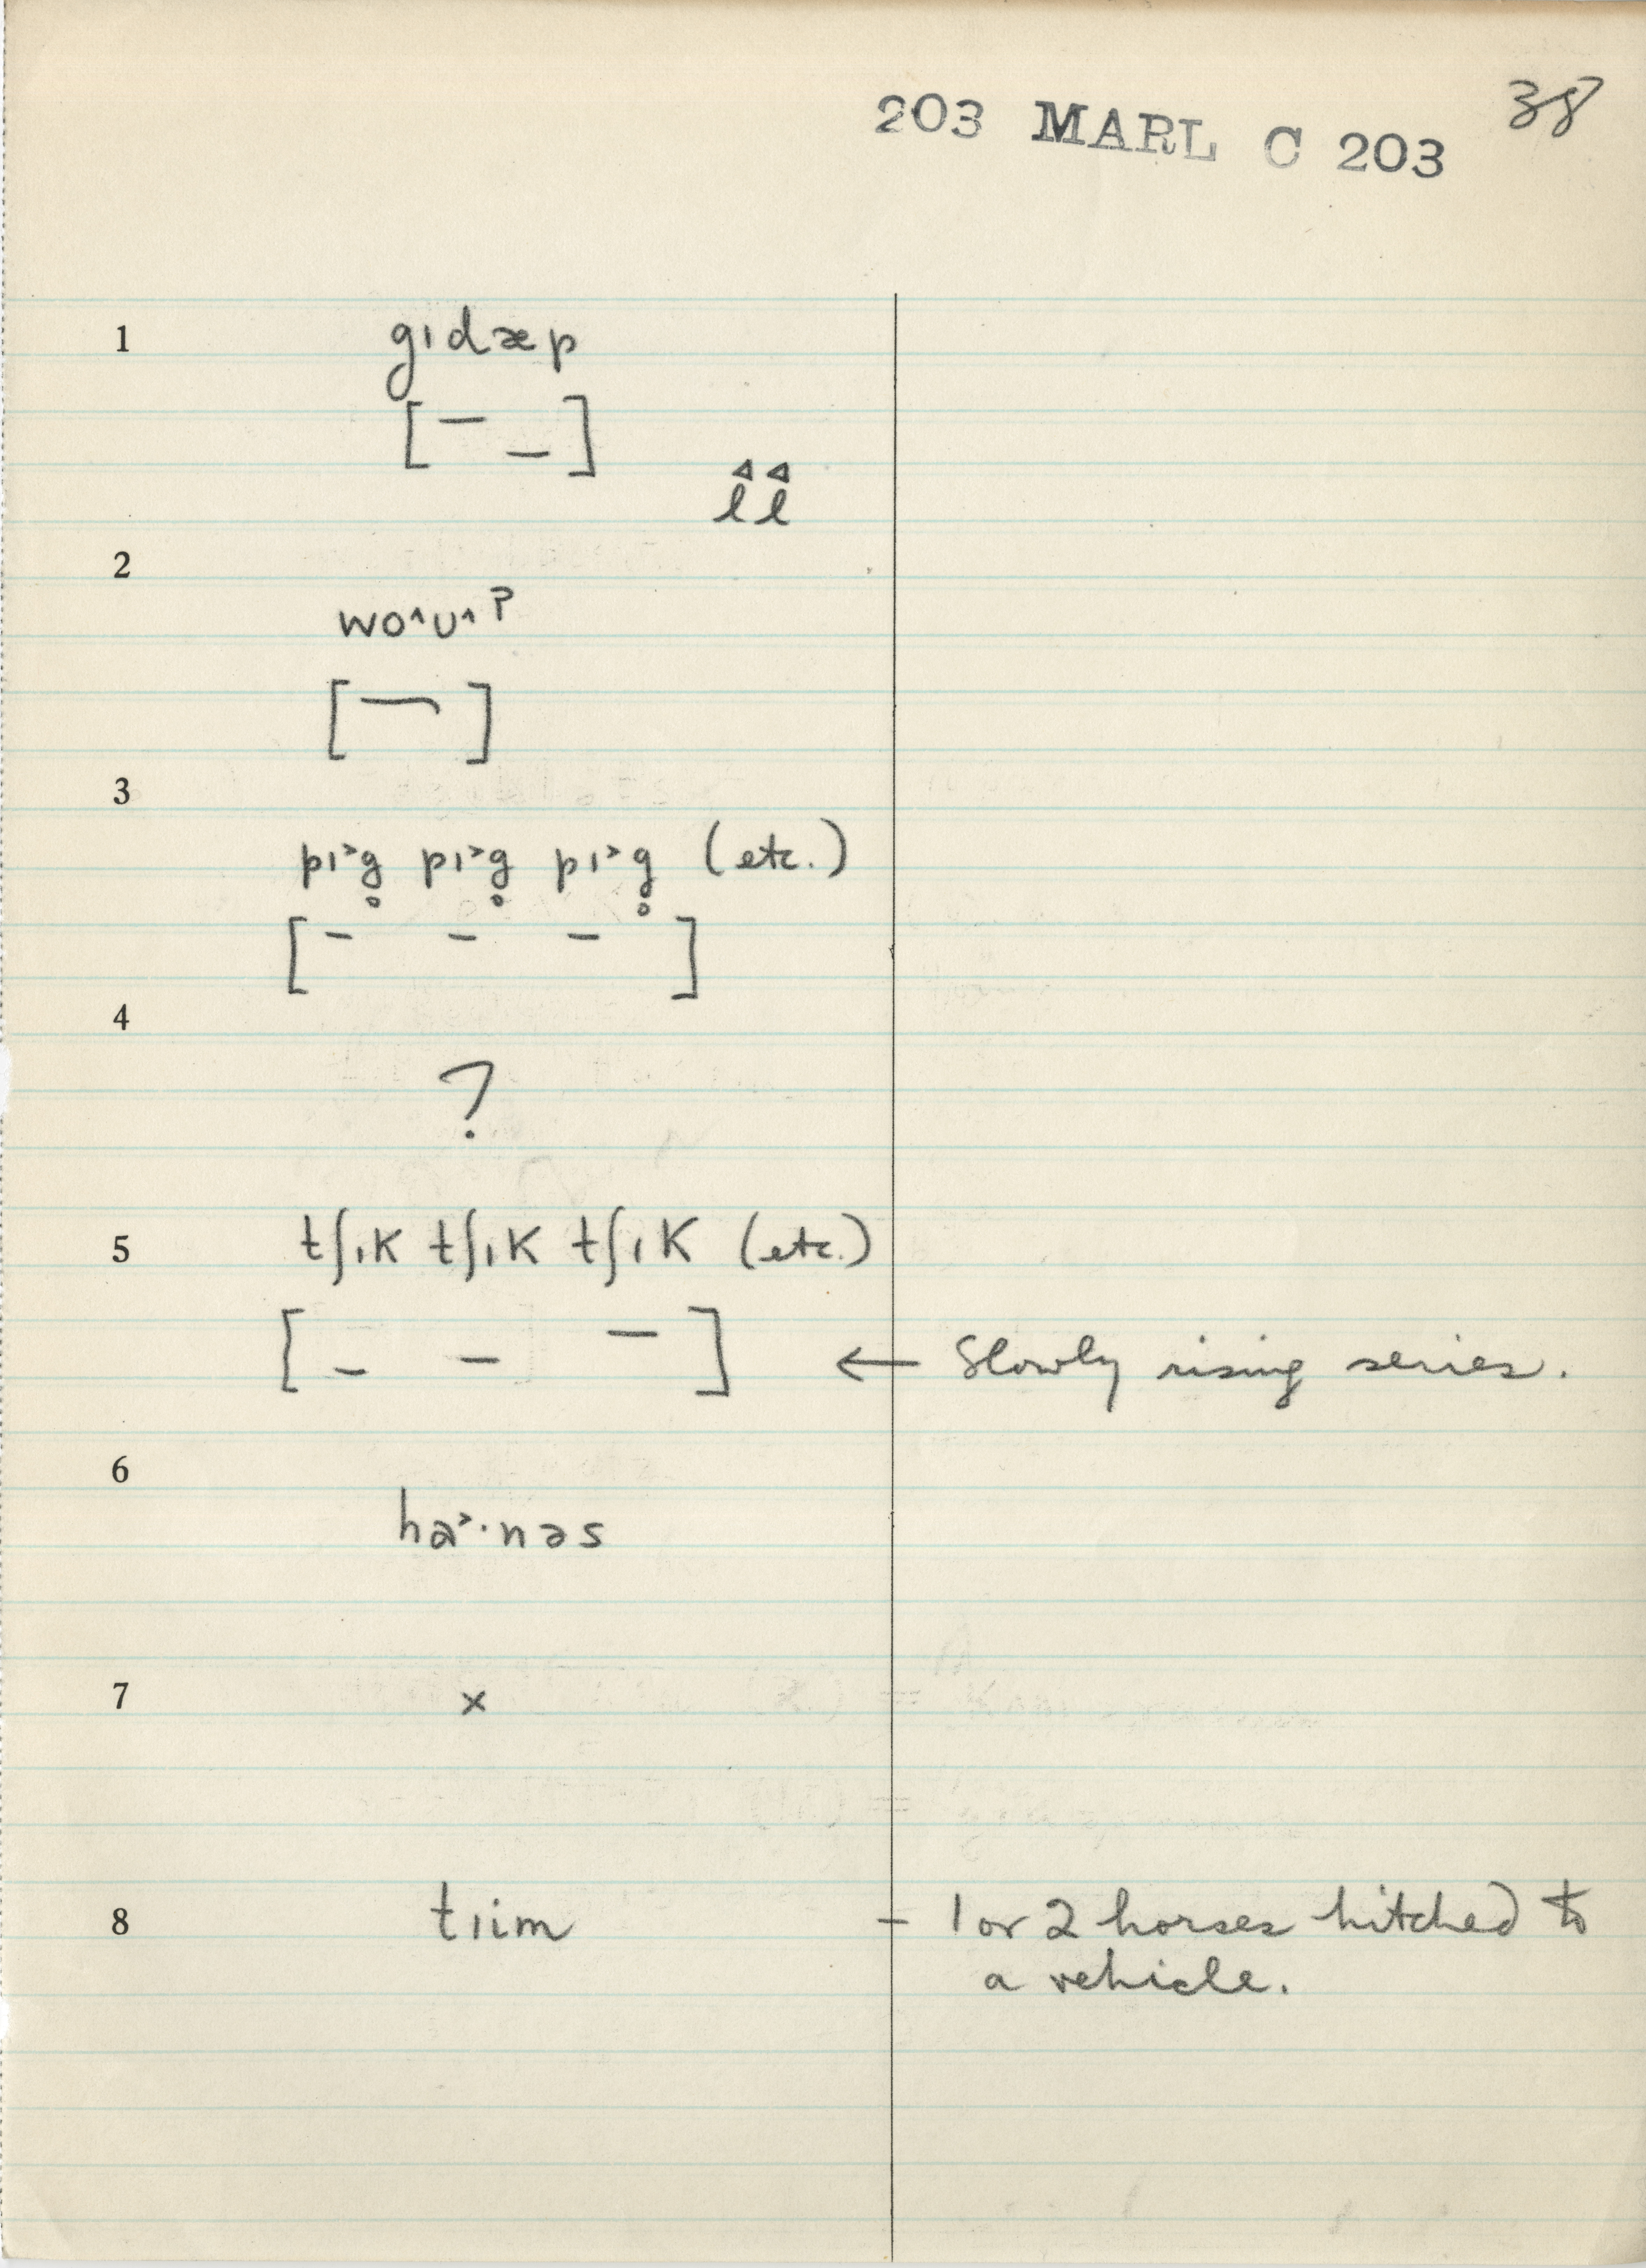 203 MARL C 203 38
1 gɪdæp
[ – – ]
ℓℓ
2
wo˄ʊ˄ʔ
[ ]
3
pɪ˃g̥ pɪ˃g̥ pɪ˃g̥ (etc.)
[ – – – ]
4
?
5 tʃɪk tʃɪk tʃɪk (etc.)
[ – – – ] ← Slowly rising series.
6
ha˃·nəs
7 x
8 tɪim – 1 or 2 horses hitched to
a vehicle.